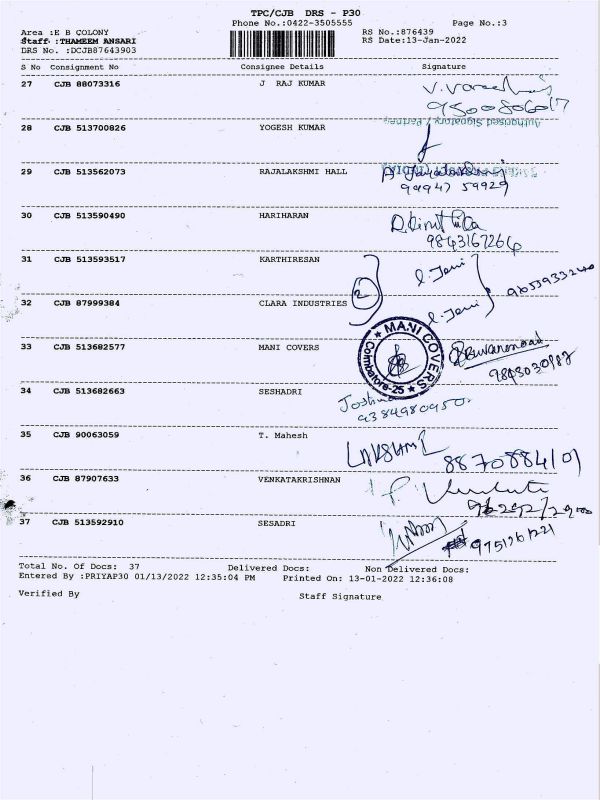 TPC/CJB DRS - P30
Phone No.:0422-3505555 Page No.:3
Area :E B COLONY RS No.:876439
Staff :THAMEEM ANSARI RS Date:13-Jan-2022
DRS No. :DCJB87643903
S No Consignment No Consignee Details Signature
27 CJB 88073316 J RAJ KUMAR
9500806017
Authorised Signatory / Partner
28 CJB 513700826 YOGESH KUMAR
29 CJB 513562073 RAJALAKSHMI HALL
99947 59929
30 CJB 513590490 HARIHARAN
9843167264
31 CJB 513593517 KARTHIRESAN
2
32 CJB 87999384 CLARA INDUSTRIES
33 CJB 513682577 MANI COVERS
★ MANI COVERS ★ Coimbatore-25
9843030982
34 CJB 513682663 SESHADRI
9384980950
35 CJB 90063059 T. Mahesh
8870884101
36 CJB 87907633 VENKATAKRISHNAN
37 CJB 513592910 SESADRI
9751261221
Total No. Of Docs: 37 Delivered Docs: Non Delivered Docs:
Entered By :PRIYAP30 01/13/2022 12:35:04 PM Printed On: 13-01-2022 12:36:08
Verified By Staff Signature